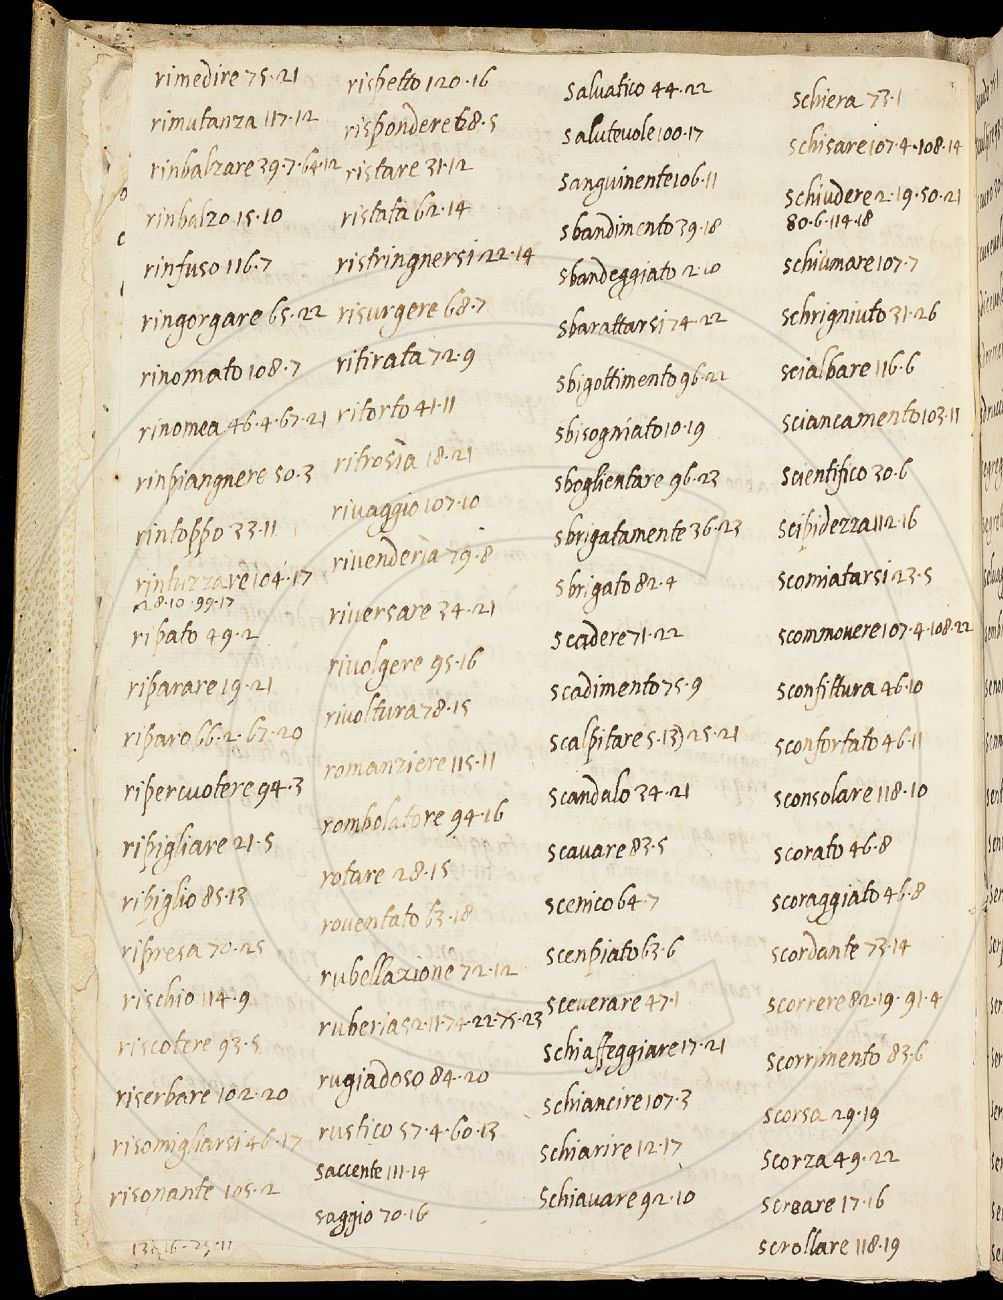 rimedire 75·21
rimutanza 117·12
rinbalzare 39·7·64·12
rinbalzo 15·10
rinfuso 116·7
ringorgare 65·22
rinomato 108·7
rinomea 46·4·67·21
rinpiangnere 50·3
rintoppo 33·11
rintuzzare 104·17
28·10·99·17
ripato 49·2
riparare 19·21
riparo 66·2·67·20
ripercuotere 94·3
ripigliare 21·5
ripiglio 85·13
ripresa 70·25
rischio 114·9
riscotere 93·5
riserbare 102·20
risomigliarsi 46·17
risonante 105·2
rispetto 120·16
rispondere 68·5
ristare 31·12
ristata 62·14
ristringnersi 22·14
risurgere 68·7
ritirata 72·9
ritorto 41·11
ritrosìa 18·21
rivaggio 107·10
rivenderìa 79·8
riversare 34·21
rivolgere 95·16
rivoltura 78·15
romanziere 115·11
rombolatore 94·16
rotare 28·15
roventato 63·18
rubellazione 72·12
ruberia 52·11·74·22·75·23
rugiadoso 84·20
rustico 57·4·60·13
saccente 111·14
saggio 70·16
salvatico 44·22
salutevole 100·17
sanguinente 106·11
sbandimento 39·18
sbandeggiato 2·10
sbarattarsi 74·22
sbigottimento 96·22
sbisogniato 10·19
sboglientare 96·23
sbrigatamente 36·23
sbrigato 82·4
scadere 71·22
scadimento 75·9
scalpitare 5·13) 25·21
scandalo 34·21
scavare 83·5
scenico 64·7
scenpiato 63·6
sceverare 47·1
schiaffeggiare 17·21
schiancire 107·3
schiarire 12·17
schiavare 92·10
schiera 73·1
schisare 107·4·108·14
schiudere 2·19·50·21
80·6·114·18
schiumare 107·7
schrigniuto 31·26
scialbare 116·6
sciancamento 103·11
scientifico 30·6
scipidezza 112·16
scomiatarsi 23·5
scommovere 107·4·108·22
sconfittura 46·10
sconfortato 46·11
sconsolare 118·10
scorato 46·8
scoraggiato 46·8
scordante 73·14
scorrere 82·19·91·4
scorrimento 83·6
scorsa 29·19
scorza 49·22
screare 17·16
scrollare 118·19